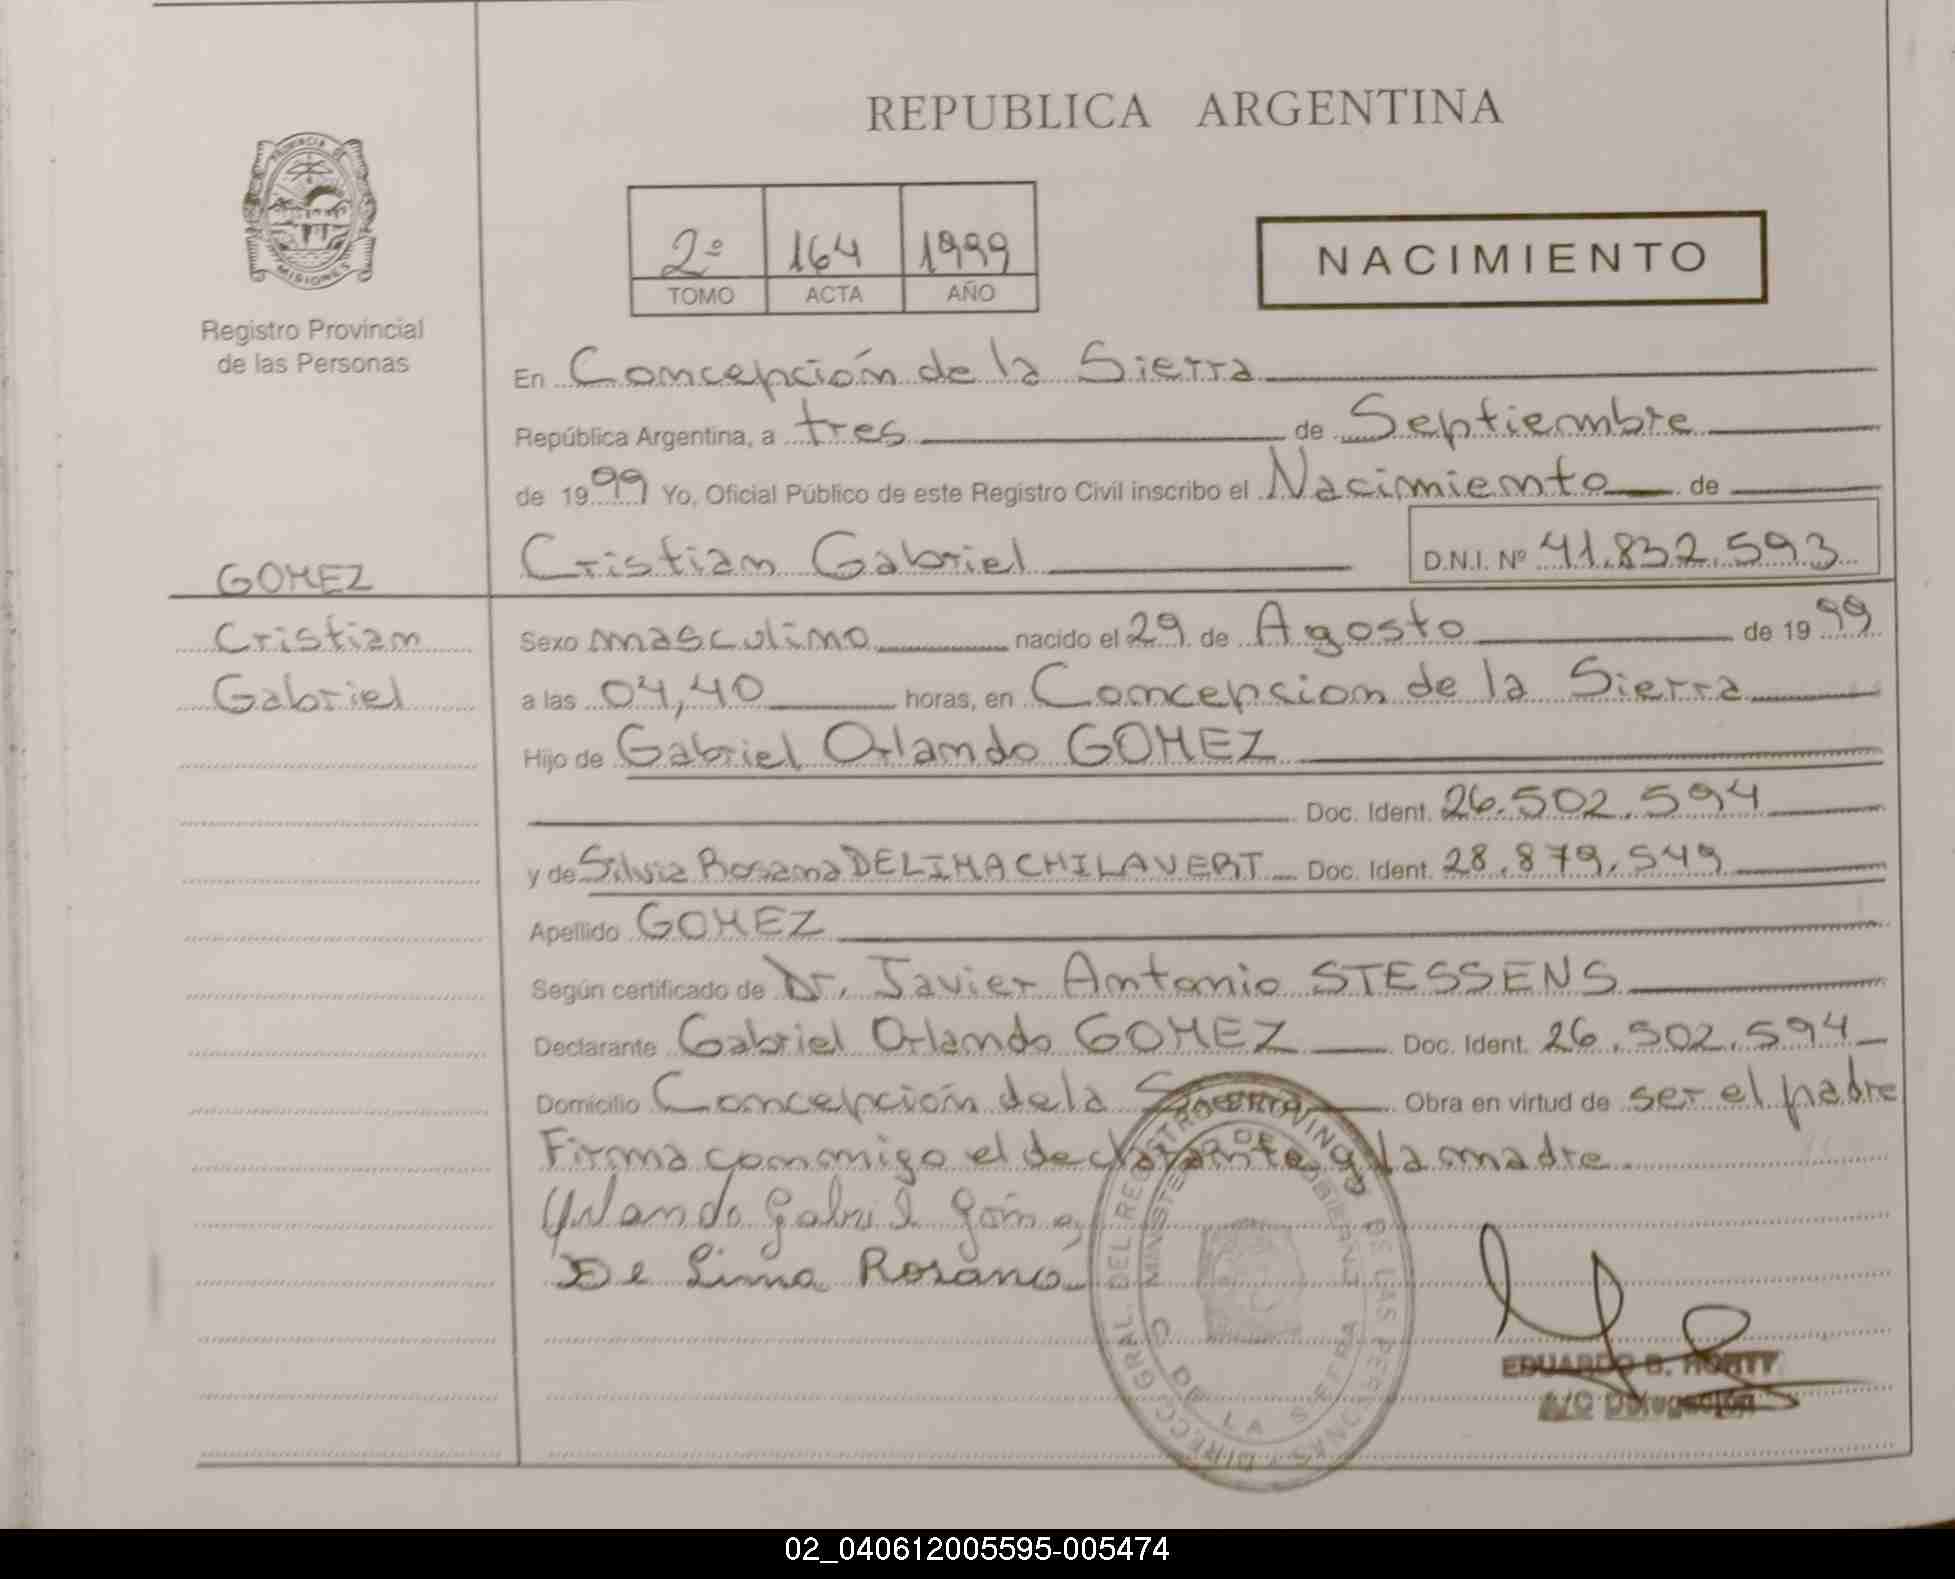 REPUBLICA ARGENTINA
PROVINCIA DE
MISIONES
Registro Provincial
de las Personas
2º 164 1999
TOMO ACTA AÑO
NACIMIENTO
En Concepción de la Sierra
República Argentina, a tres de Septiembre
de 1999 Yo, Oficial Público de este Registro Civil inscribo el Nacimiento de
Cristian Gabriel D.N.I. Nº 41.832.593
GOMEZ
Cristian
Gabriel
Sexo masculino nacido el 29 de Agosto de 1999
a las 04,40 horas, en Concepcion de la Sierra
Hijo de Gabriel Orlando GOMEZ
Doc. Ident. 26.502.594
y de Silvia Rosana DELIMA CHILAVERT Doc. Ident. 28.879.549
Apellido GOMEZ
Según certificado de Dr. Javier Antonio STESSENS
Declarante Gabriel Orlando GOMEZ Doc. Ident. 26.502.594
Domicilio Concepción de la Sierra Obra en virtud de ser el padre
Firma conmigo el declarante y la madre
Orlando Gabriel Gómez
De Lima Rosana
DIRECC. GRAL. DEL REGISTRO PROVINC. DE LAS PERSONAS
MINISTERIO DE GOBIERNO
C. DE LA SIERRA
EDUARDO B.
A/C Delegación
02_040612005595-005474